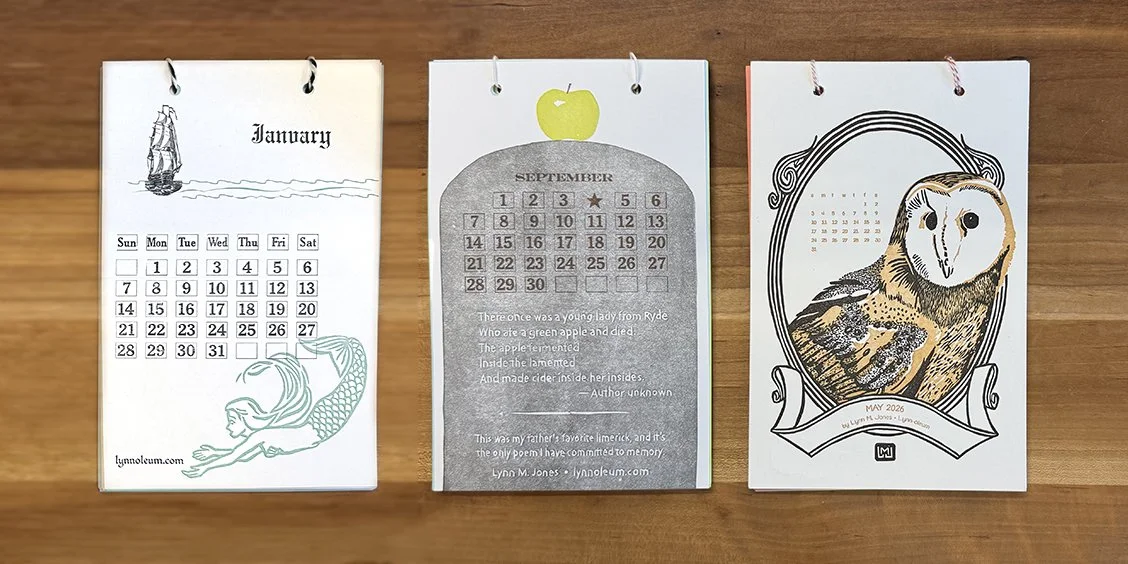 January
Sun Mon Tue Wed Thu Fri Sat
1 2 3 4 5 6
7 8 9 10 11 12 13
14 15 16 17 18 19 20
21 22 23 24 25 26 27
28 29 30 31
lynnoleum.com
SEPTEMBER
1 2 3 ★ 5 6
7 8 9 10 11 12 13
14 15 16 17 18 19 20
21 22 23 24 25 26 27
28 29 30
There once was a young lady from Ryde
Who ate a green apple and died.
The apple fermented
Inside the lamented
And made cider inside her insides.
— Author unknown
This was my father's favorite limerick, and it's
the only poem I have committed to memory.
Lynn M. Jones • lynnoleum.com
s m t w t f s
1 2
3 4 5 6 7 8 9
10 11 12 13 14 15 16
17 18 19 20 21 22 23
24 25 26 27 28 29 30
31
MAY 2026
by Lynn M. Jones • Lynnoleum